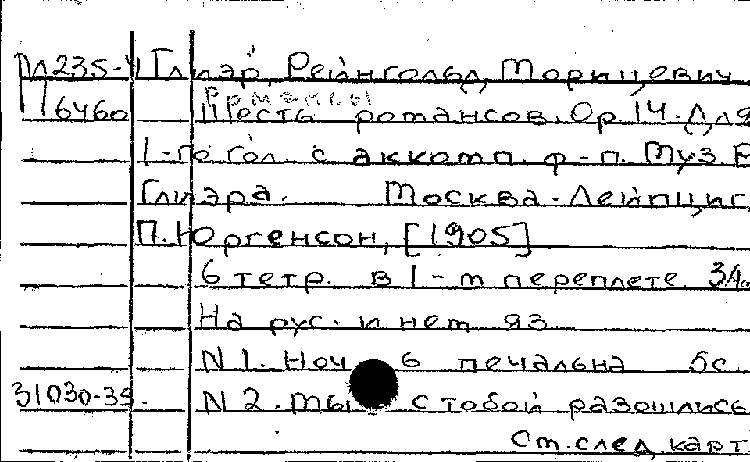 Пл235-4 Глиэр, Рейнгольд Морицевич.
Романсы
П6460 Шесть романсов. Op. 14. Для
1-го гол. с аккомп. ф-п. Муз. Р.
Глиэра. Москва-Лейпциг,
П. Юргенсон, [1905]
6 тетр. в 1-м переплете.
На рус. и нем яз
N 1. Ноч 6 печальна 5с.
31030-39. N 2. Мы с тобой разошлись
См. след. карт